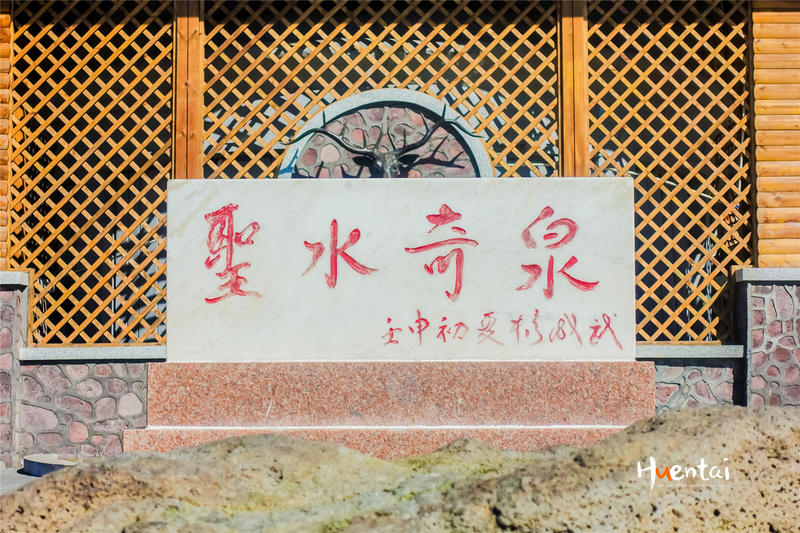 聖水奇泉
壬申初夏
Huentai